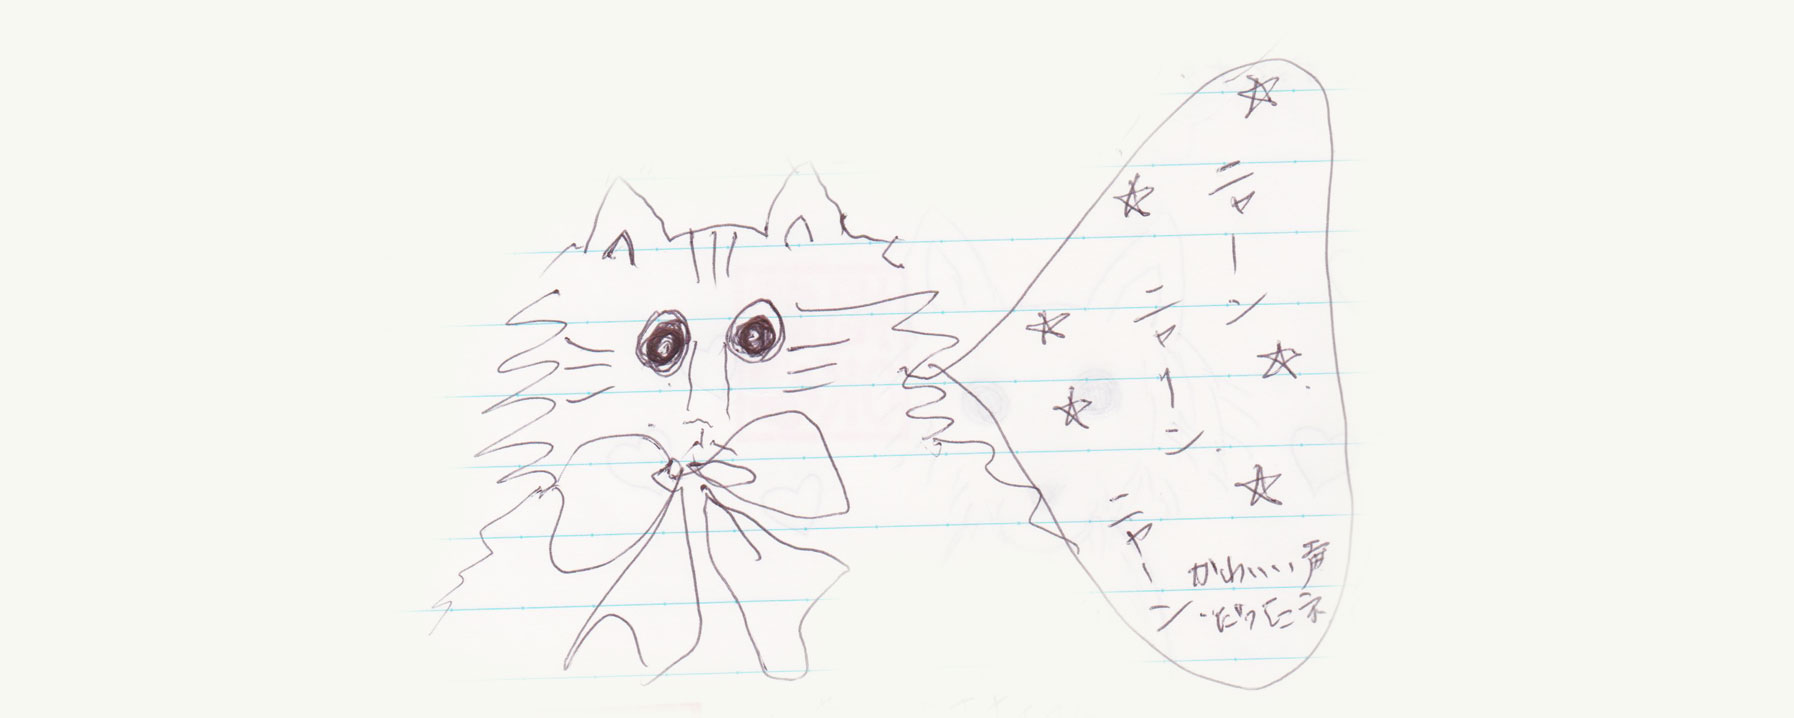 ニャーン
ニャーン
ニャーン
かわいい声
だったネ